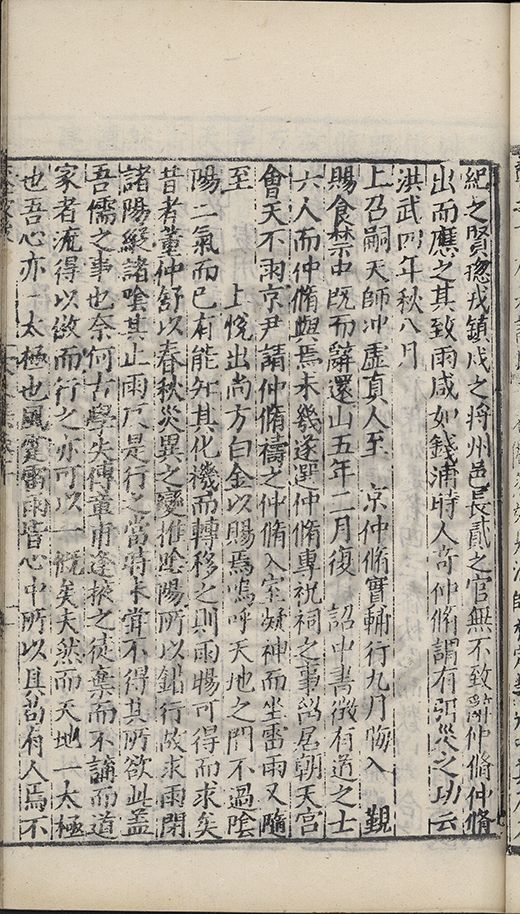 紀之賢總戎鎮戍之将州邑長貳之官無不致鄧仲脩仲脩
出而應之其致雨咸如錢浦時人奇仲脩謂有弭災之功云
洪武四年秋八月
上召嗣天師冲虛真人至　京仲脩實輔行九月晦入　覲
賜食禁中既而辭還山五年二月復　詔中書徵有道之士
六人而仲脩與焉未幾遂選仲脩專祝祠之事寓居朝天宮
會天不雨京尹請仲脩禱之仲脩入室凝神而坐雷雨又隨
至　　上悅出尚方白金以賜焉嗚呼天地之間不過陰
陽二氣而已有能知其化機而轉移之則雨暘可得而求矣
昔者董仲舒以春秋災異之變推陰陽所以錯行故求雨閉
諸陽縱諸陰其止雨反是行之當時未甞不得其所欲此盖
吾儒之事也奈何古學失傳章甫逢掖之徒棄而不講而道
家者流得以倣而行之亦可以一慨矣夫然而天地一太極
也吾心亦一太極也風霆雷雨皆心中所以具苟有人焉不